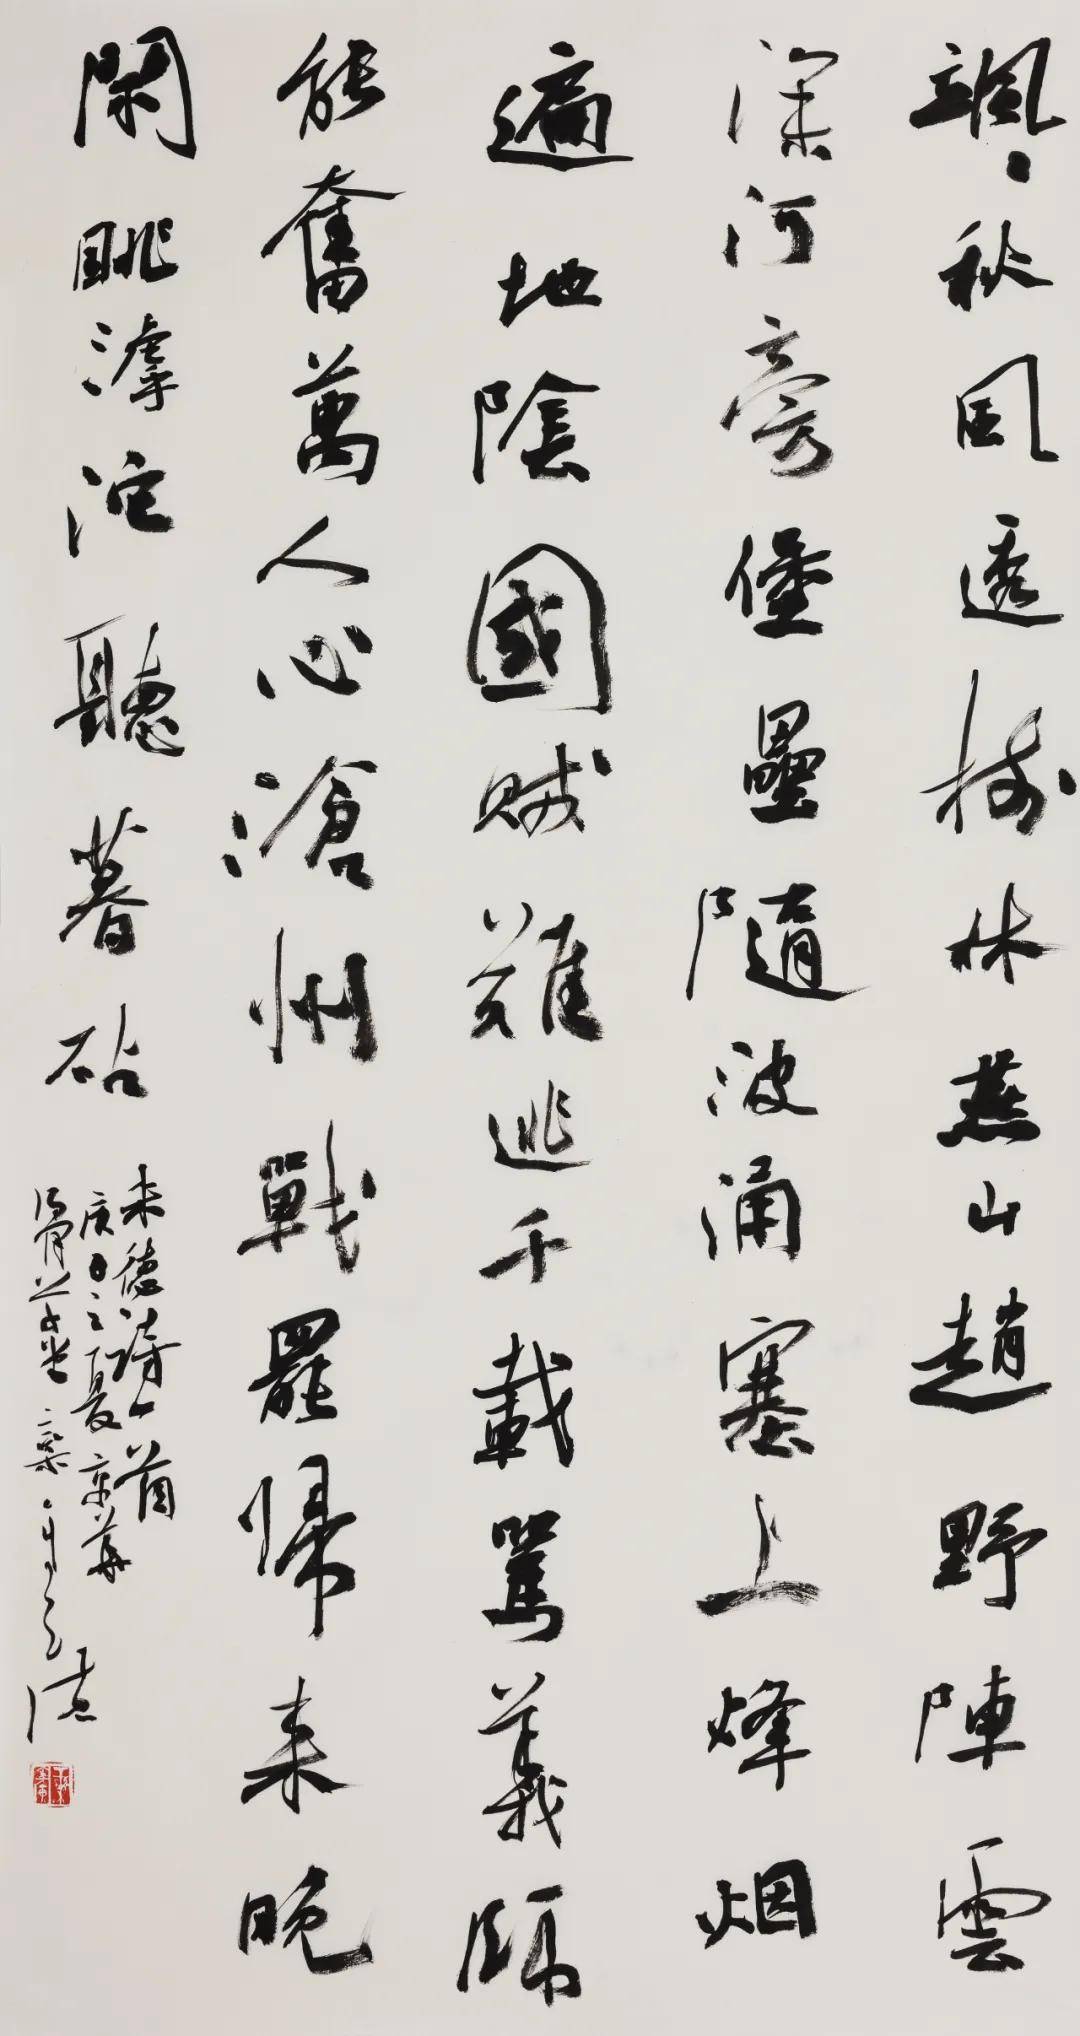 飒飒秋風透樹林燕山趙野陣雲
深河旁堡壘隨波涌塞上烽烟
遍地陰國賊難逃千載罵義師
能奮萬人心滄州戰罷歸來晚
閑眺滹沱聽暮砧
朱德詩一首
庚日之夏京華